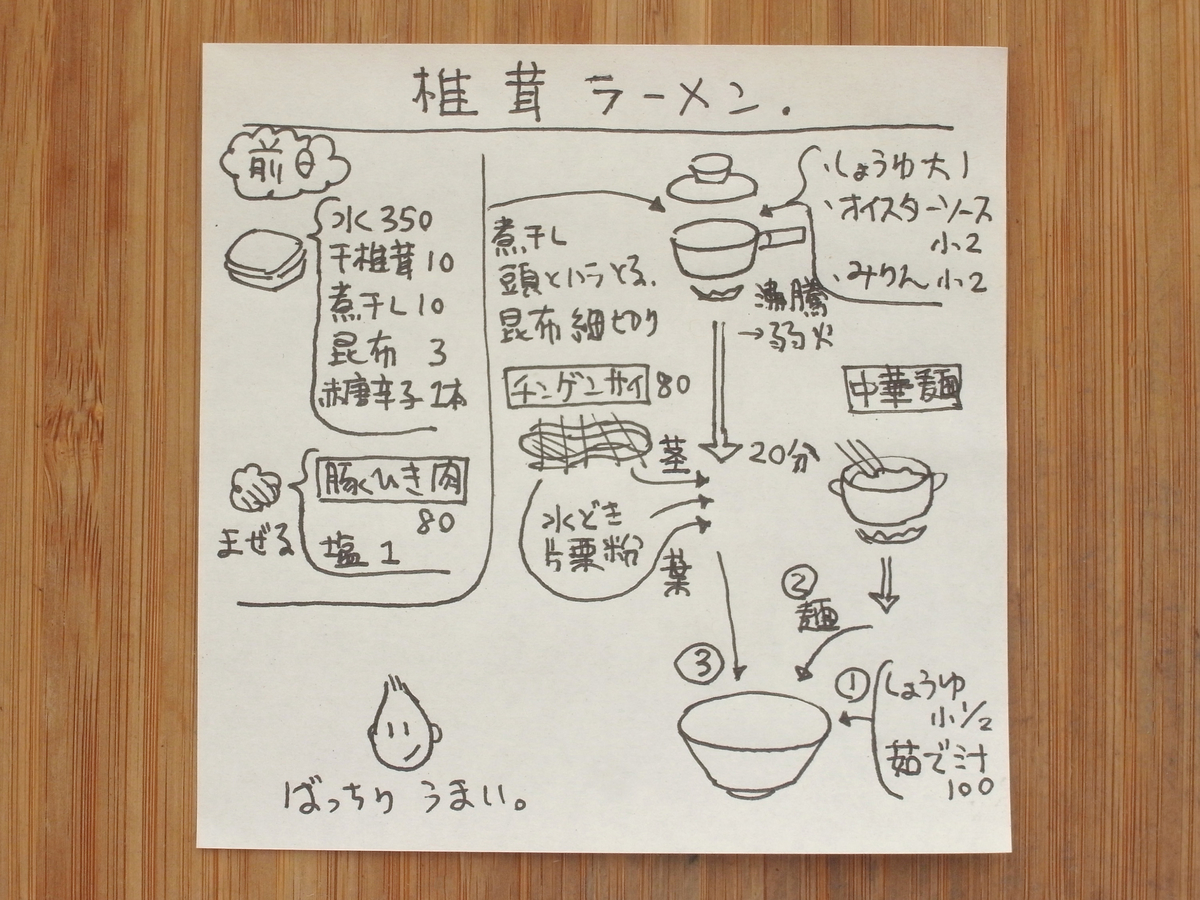 椎茸ラーメン.
前日
水350
干椎茸10
煮干し10
昆布 3
赤唐辛子1本
豚ひき肉
80
塩 1
まぜる
煮干し
頭とハラとる.
昆布細切り
・しょうゆ大1
・オイスターソース
小2
・みりん小2
沸騰
→弱火
チンゲンサイ80
茎
水どき
片栗粉
葉
20分
中華麺
②
麺
③
①しょうゆ
小1/2
茹で汁
100
ばっちりうまい。